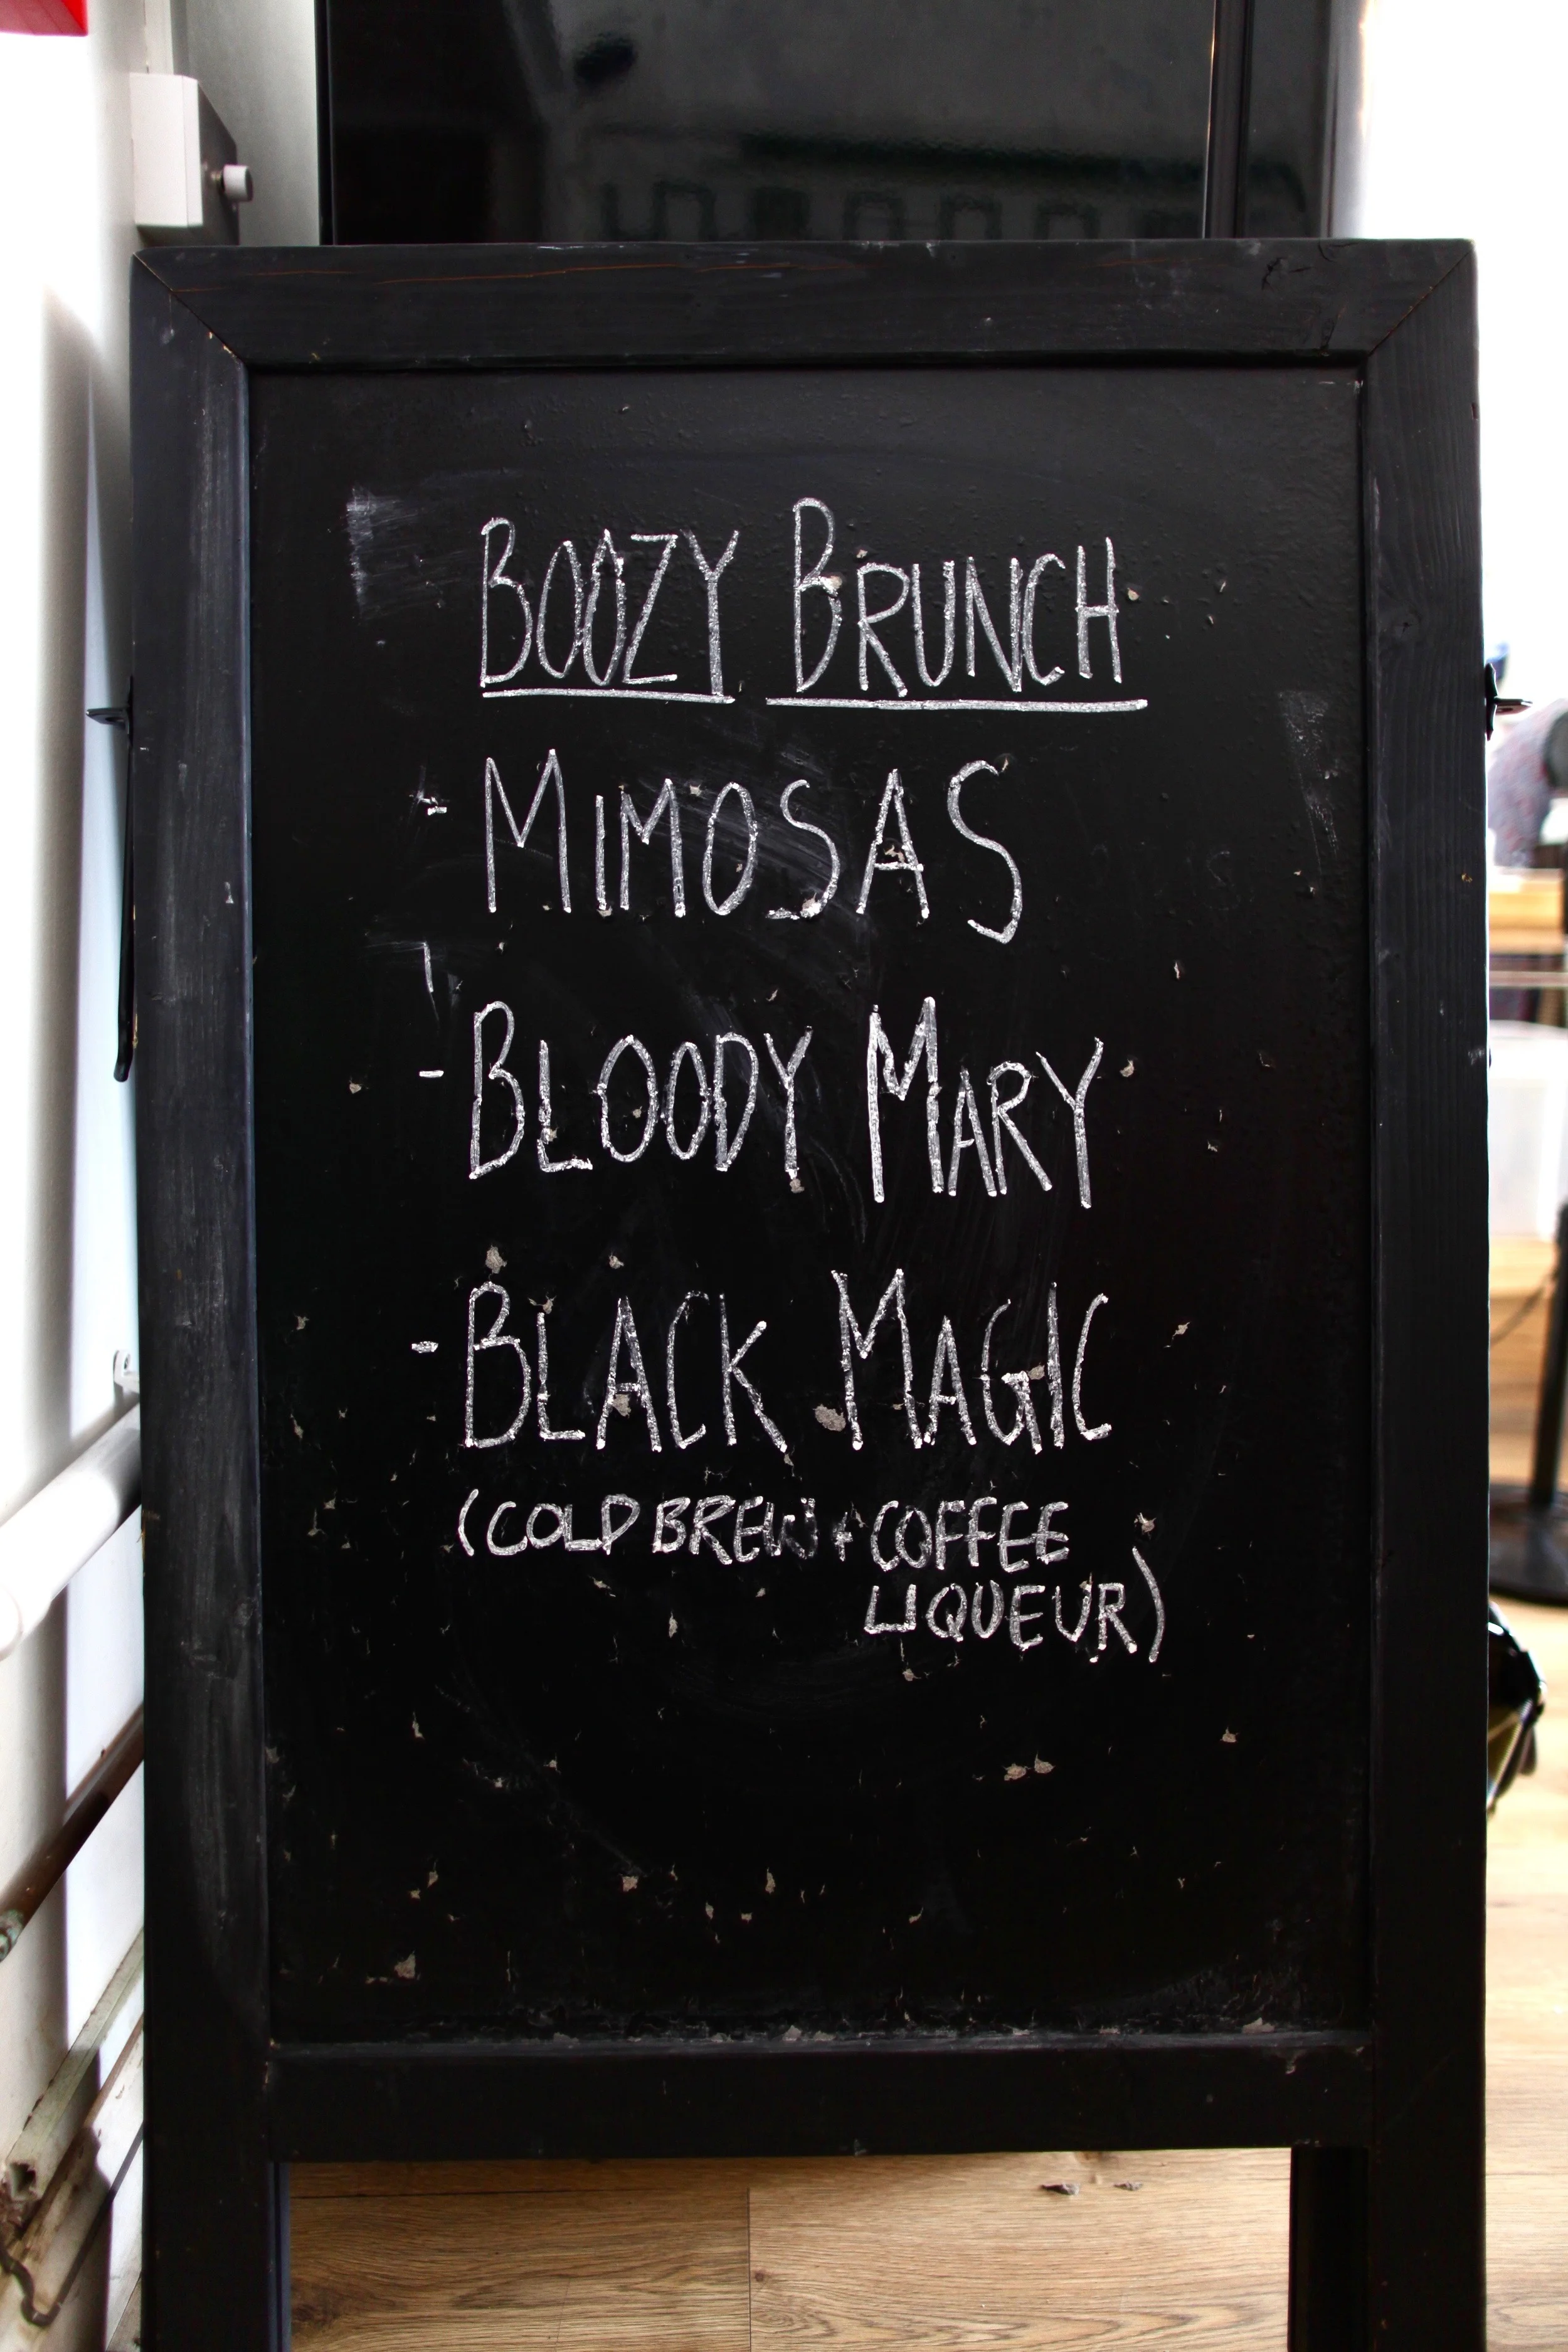 BOOZY BRUNCH
- MIMOSAS
- BLOODY MARY
- BLACK MAGIC
(COLD BREW + COFFEE
LIQUEUR)